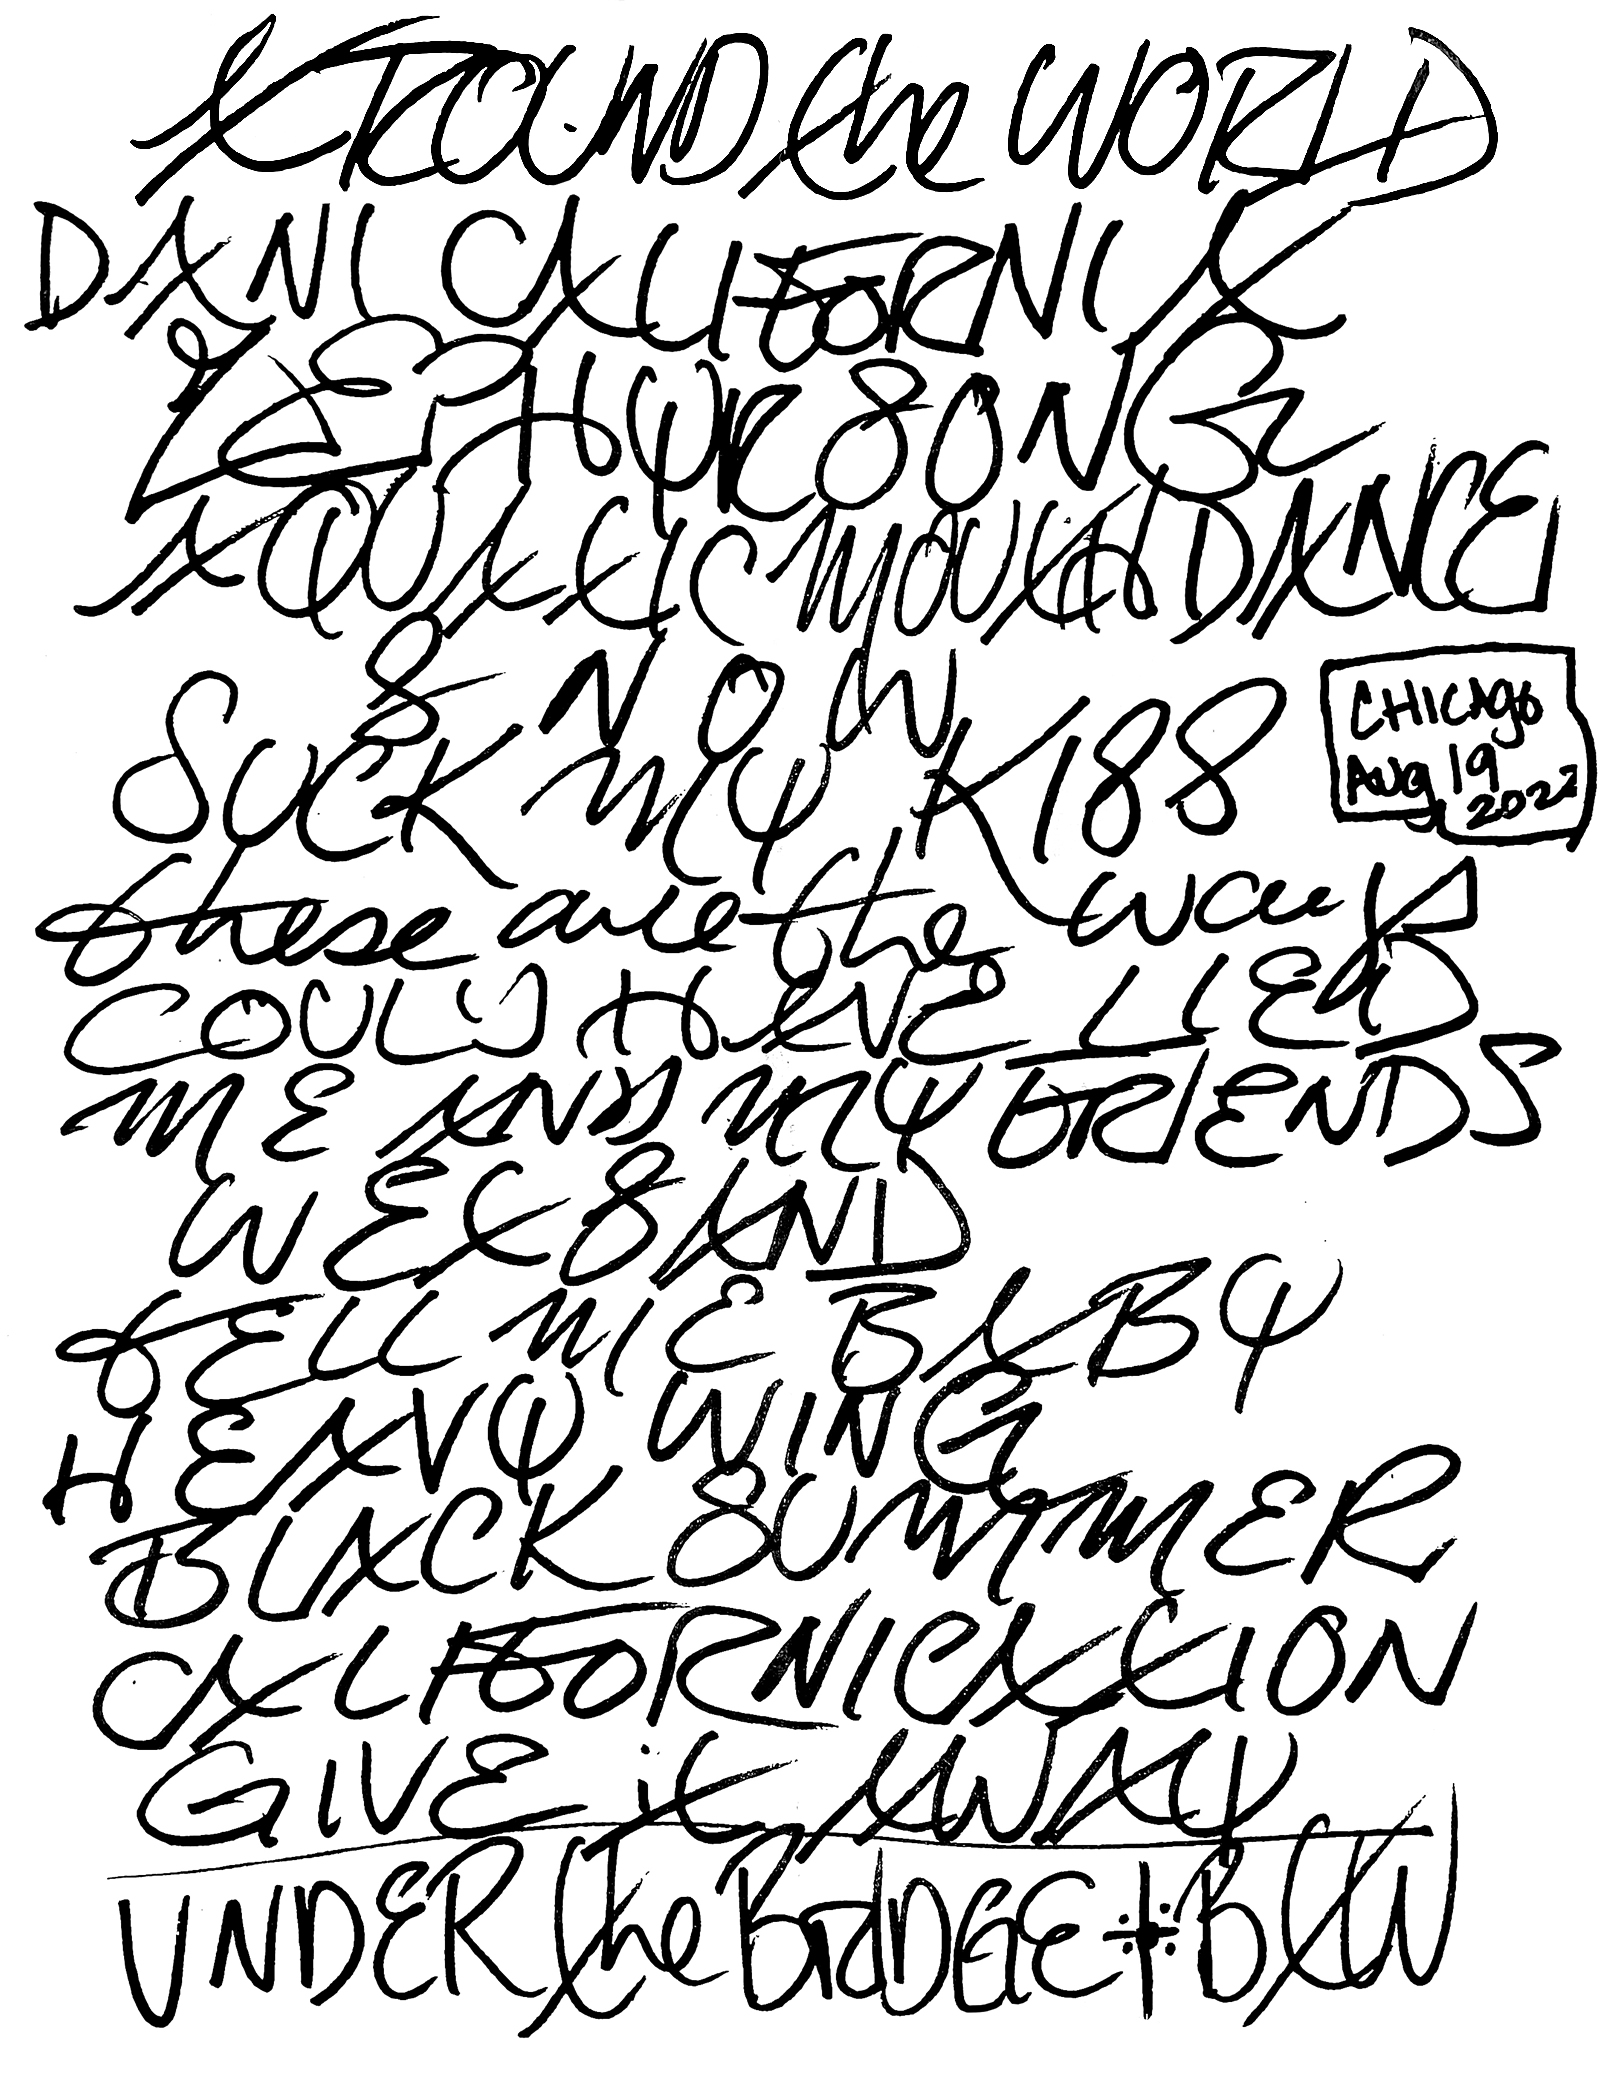 AROUND the WORLD
DANI CALIFORNIA
ZEPHYR SONG
AQUATIC MOUTH DANCE
SNOW
SUCK MY KISS
CHICAGO
AUG 19
2022
these are the ways
COULD HAVE LIED
ME AND MY FRIENDS
WET SAND
TELL ME BABY
HEAVY WING
BLACK SUMMER
CALIFORNICATION
GIVE it AWAY
UNDER the BRIDGE + BTW